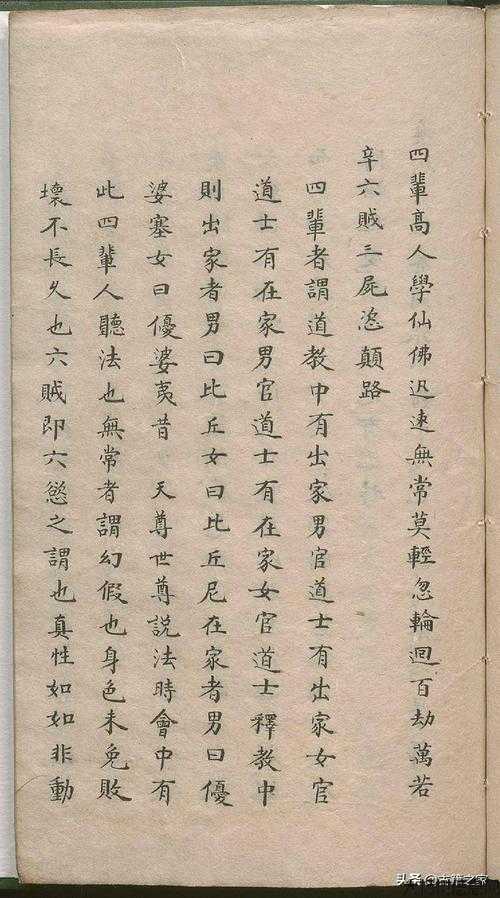 四輩高人學仙佛迟速無常莫輕忽輪迴百劫萬若
辛六賊三屍恣顛路
四輩者謂道教中有出家男官道士有出家女官
道士有在家男官道士有在家女官道士釋教中
則出家者男曰比丘女曰比丘尼在家者男曰優
婆塞女曰優婆夷昔 天尊世尊説法時會中有
此四輩人聽法也無常者謂幻假也身色未免敗
壞不長久也六賊即六慾之謂也真性如如非動
头条@古籍之家